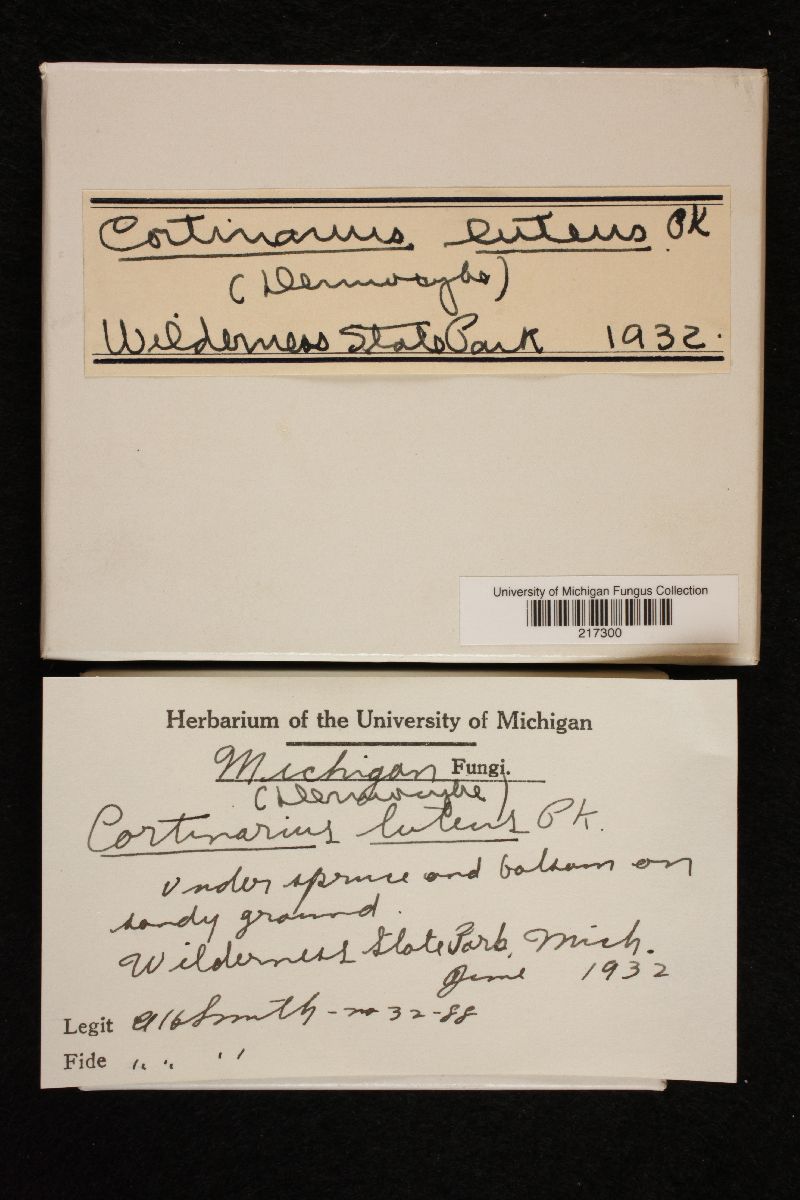 Cortinarius luteus PK
(Dermocybe)
Wilderness State Park 1932.
University of Michigan Fungus Collection
217300
Herbarium of the University of Michigan
Michigan Fungi.
(Dermocybe)
Cortinarius luteus Pk.
Under spruce and balsam on
sandy ground.
Wilderness State Park, Mich.
June 1932
Legit AHSmith - no 32-88
Fide " " " "